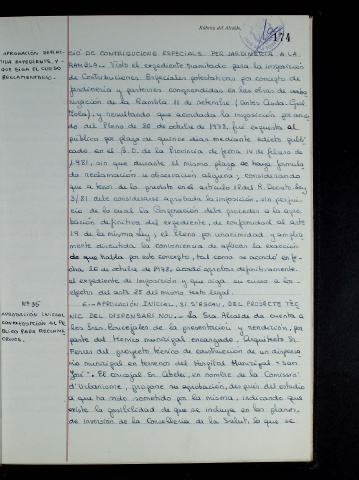 Rúbrica del Alcalde,
174
APROBACIÓN DEFINI-
TIVA EXPEDIENTE, Y
QUE SIGA EL CURSO
REGLAMENTARIO.
CIÓ DE CONTRIBUCIONS ESPECIALS PER JARDINERIA A LA
RAMBLA.- Visto el expediente tramitado para la imposición
de Contribuciones Especiales potestativas por concepto de
jardinería y parterres comprendidas en las obras de
nización de la Rambla 11 de setembre (antes Avda. Gral.
Mola), y resultando que acordada la imposición por acuer
do del Pleno de 20 de octubre de 1978, fue expuesto al
público por plazo de quince días mediante edicto publi
cado en el B.O. de la Provincia de fecha 14 de febrero de
1.981, sin que durante el mismo plazo se haya formula
do reclamación u observación alguna; considerando
que a tenor de lo previsto en el artículo 18 del R. Decreto Ley
3/81 debe considerarse aprobada la imposición, sin perjui
cio de lo cual la Corporación debe proceder a la apro
bación definitiva del expediente, de conformidad al arto
19 de la misma Ley; el Pleno por unanimidad y amplia
mente discutida la conveniencia de aplicar la exacción
de que habla por este concepto, tal como se acordó en fe
cha 20 de octubre de 1978, acordó aprobar definitivamente
el expediente de imposición y que siga su curso a los
efectos del arto 25 del mismo texto legal.
Nº 35
APROBACIÓN INICIAL
CON EXPOSICIÓN AL PÚ
BLICO PARA RECLAMA
CIONES.
6.- APROVACIÓN INICIAL, SI S'ESCAU, DEL PROJECTE TÈC
NIC DEL DISPENSARI NOU.- La Sra. Alcaldesa da cuenta a
los Sres. Concejales de la presentación y rendición, por
parte del técnico municipal encargado, Arquitecto Sr.
Ferrer del proyecto técnico de construcción de un dispensa
rio municipal en terrenos del Hospital Municipal "San
José". El concejal Sr. Abela, en nombre de la Comissió
d'Urbanisme, propone su aprobación, después del estudio
a que ha sido sometido por la misma, indicando que
existe la posibilidad de que se incluya en los planes
de inversión de la Conselleria de la Salut, lo que se